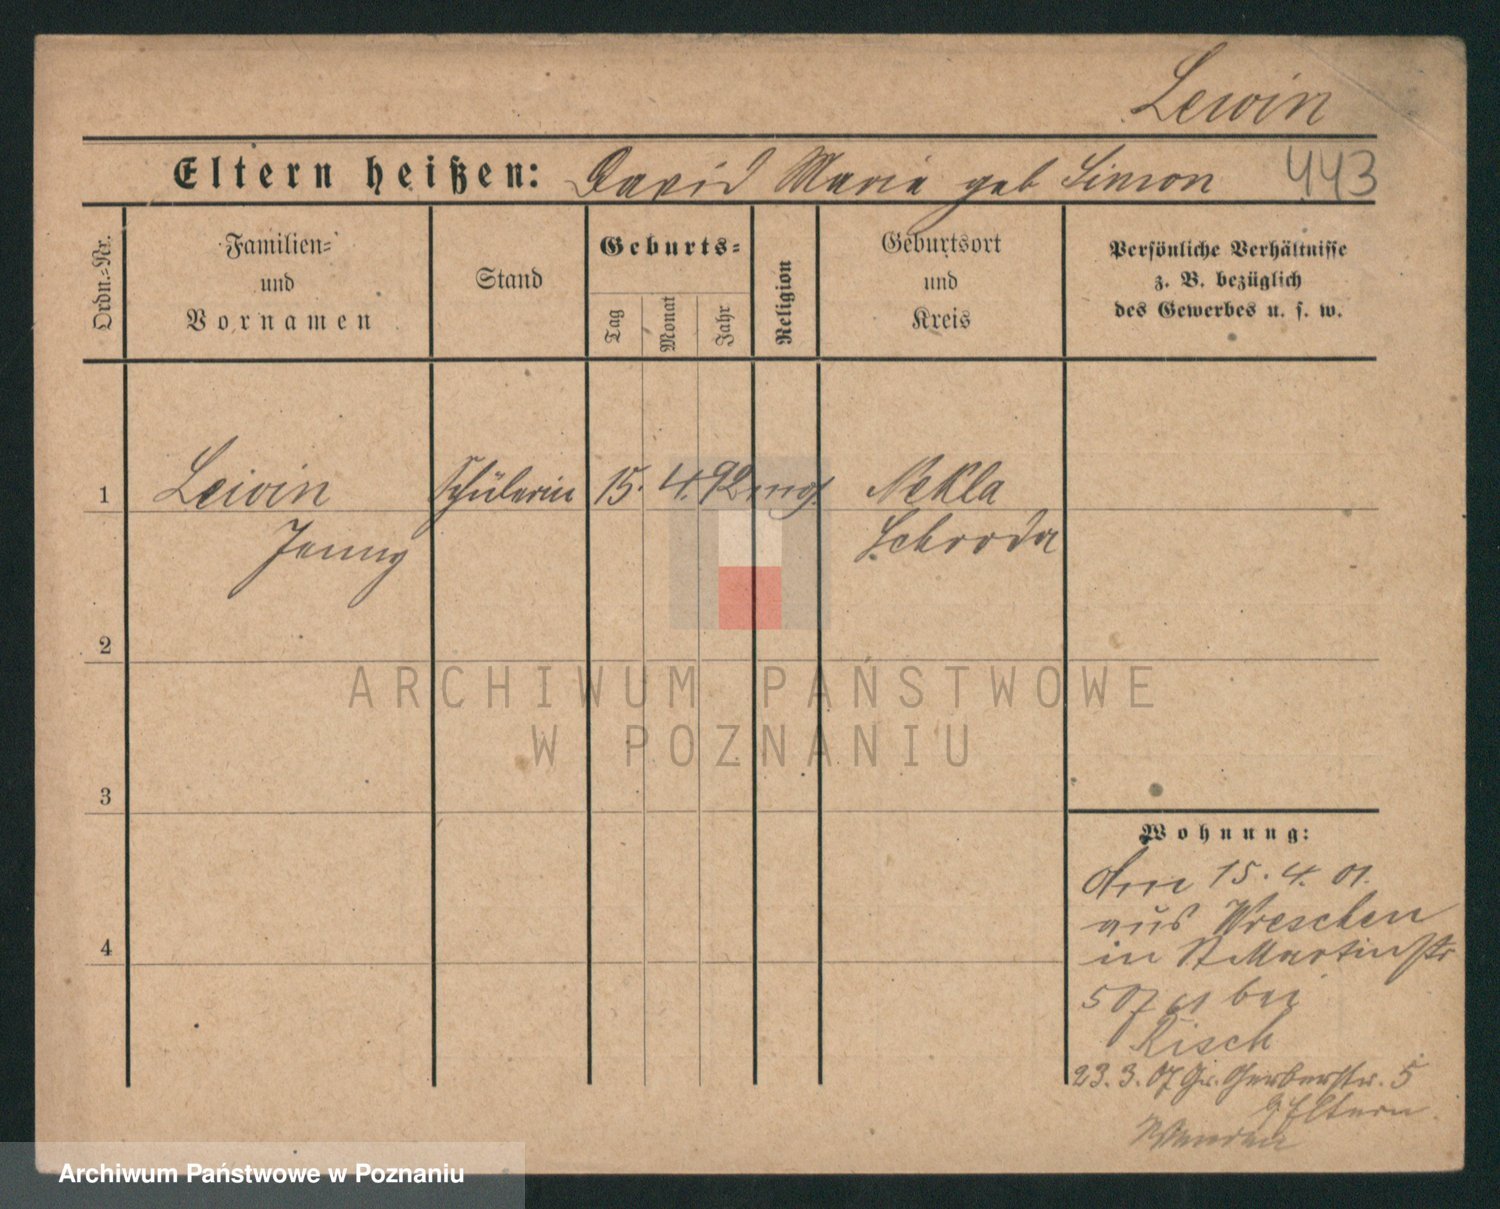 Lewin
Eltern heißen: David Maria geb Simon 443
Ordn.-Nr.
Familien-
und
Vornamen
Stand
Geburts-
Tag
Monat
Jahr
Religion
Geburtsort
und
Kreis
Persönliche Verhältnisse
z. B. bezüglich
des Gewerbes u. s. w.
1 Lewin Schülerin 15. 4. 92 mos. Nekla
Jenny Schroda
2
3
4
Wohnung:
Am 15. 4. 01.
aus Wreschen
in St Martinstr
bei
Risch
23. 3. 07 Gr. Gerberstr. 5
Eltern
ARCHIWUM PAŃSTWOWE
W POZNANIU
Archiwum Państwowe w Poznaniu